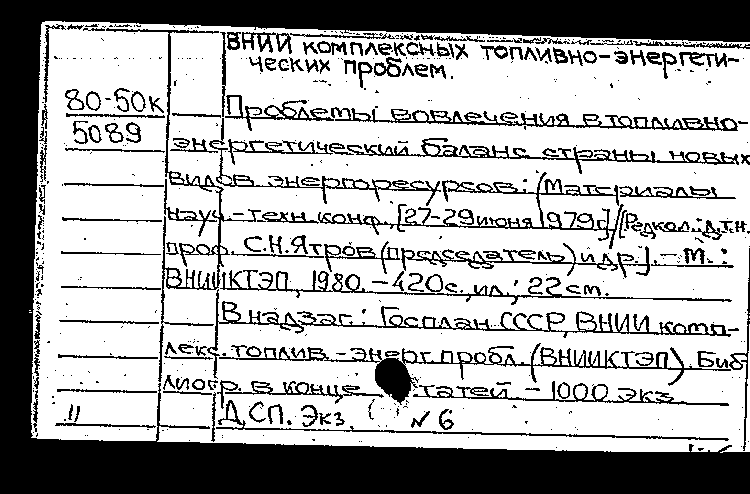 ВНИИ комплексных топливно-энергети-
ческих проблем.
80-50к
5089
Проблемы вовлечения в топливно-
энергетический баланс страны новых
видов энергоресурсов: (Материалы
науч.-техн. конф., [27-29 июня 1979г.]/[Редкол.: д.т.н.
проф. С.Н. Ятров (председатель) и др.]. - М. :
ВНИИКТЭП, 1980. - 420с., ил.; 22 см.
В надзаг.: Госплан СССР, ВНИИ комп-
лекс. топлив.-энерг. пробл. (ВНИИКТЭП). Биб
лиогр. в конце татей - 1000 экз.
11
ДСП. Экз. № 6